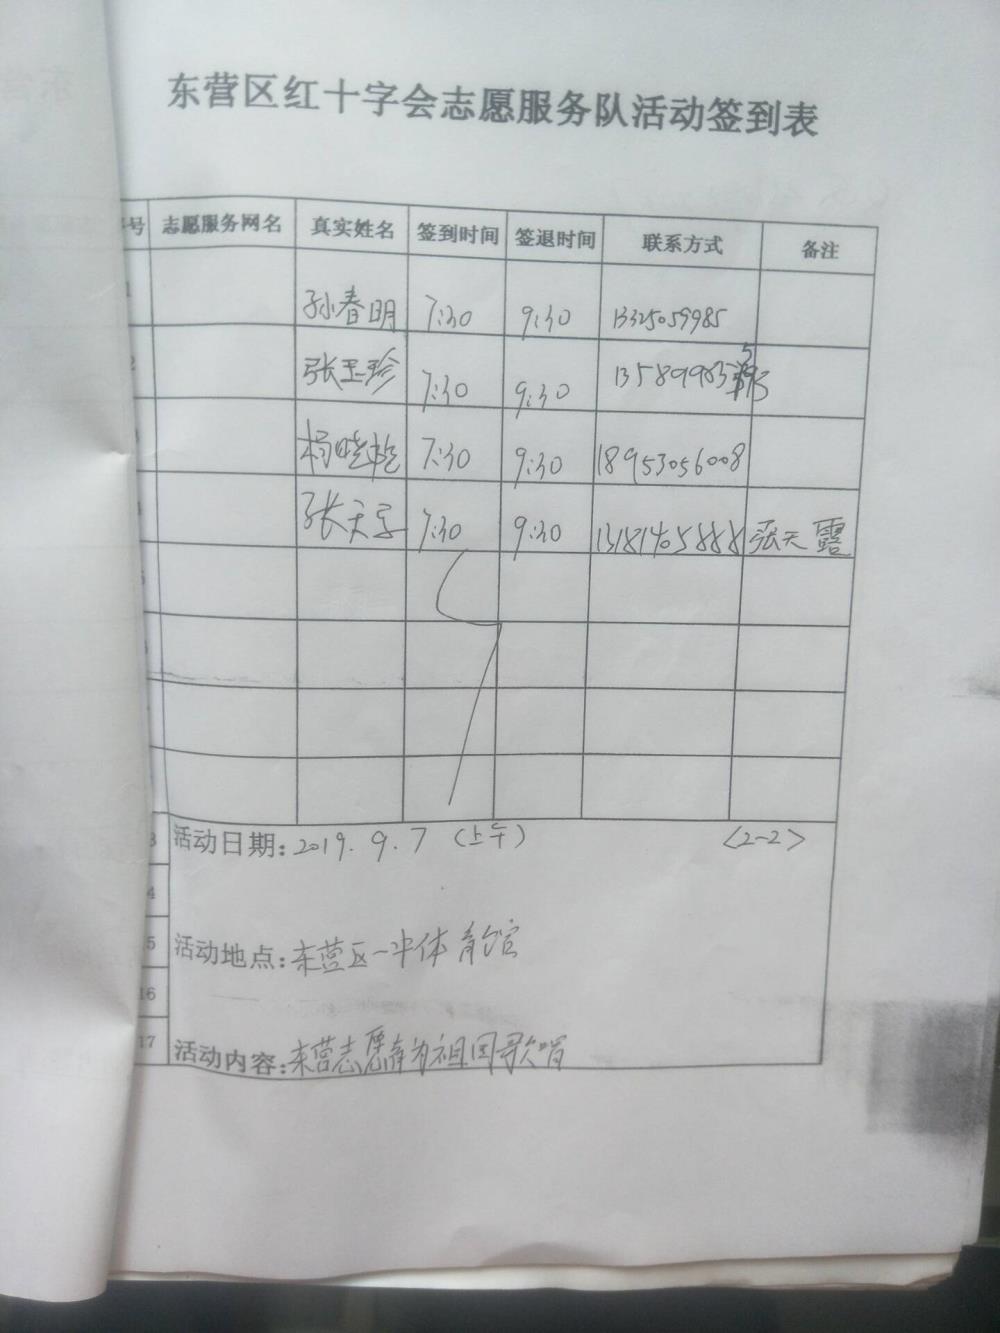 东营区红十字会志愿服务队活动签到表
号 志愿服务网名 真实姓名 签到时间 签退时间 联系方式 备注
1 孙春明 7:30 9:30 13325059985
2 张玉珍 7:30 9:30
杨晓艳 7:30 9:30 18953056008
张天 7:30 9:30 13181405888 张天露
活动日期:2019.9.7(上午) <2-2>
4
5 活动地点:东营区一中体育馆
16
17 活动内容:东营志愿者为祖国歌唱